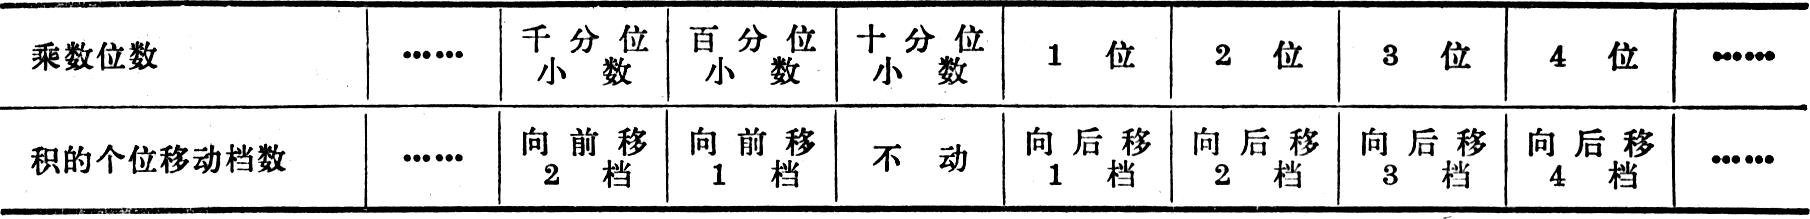 乘数位数 …… 千分位小数 百分位小数 十分位小数 1位 2位 3位 4位 ……
积的个位移动档数 …… 向前移2档 向前移1档 不动 向后移1档 向后移2档 向后移3档 向后移4档 ……